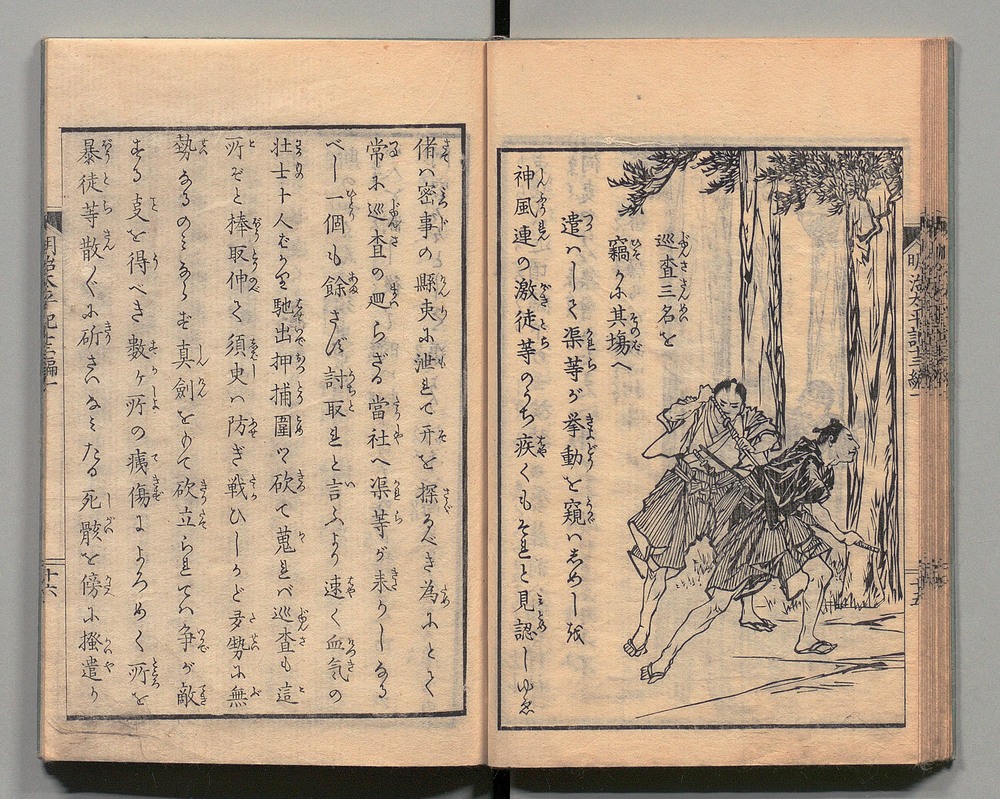 巡査三名を
竊かに其塲へ
遣ハして渠等が挙動を窺ハしめしに
神風連の激徒等のうち疾くもそれと見認しゆゑ
偖ハ密事の縣吏に泄れて开を探るべき為にとて
常に巡査の廻らざる當社へ渠等が来りしなる
べし一個も餘さず討取れと言ふより速く血気の
壮士十人ばかり馳出押捕圍ツ砍て蒐れバ巡査も這
所ぞと棒取伸て須臾ハ防ぎ戦ひしかど多勢に無
勢なるのみならず真劍をもて砍立られてハ争が敵
する支を得べき数ヶ所の痍傷によろめく所を
暴徒等散〴〵に斫さいなミたる死骸を傍に掻遣り
明治太平記十三編一
十五
明治太平記十三編一
十六